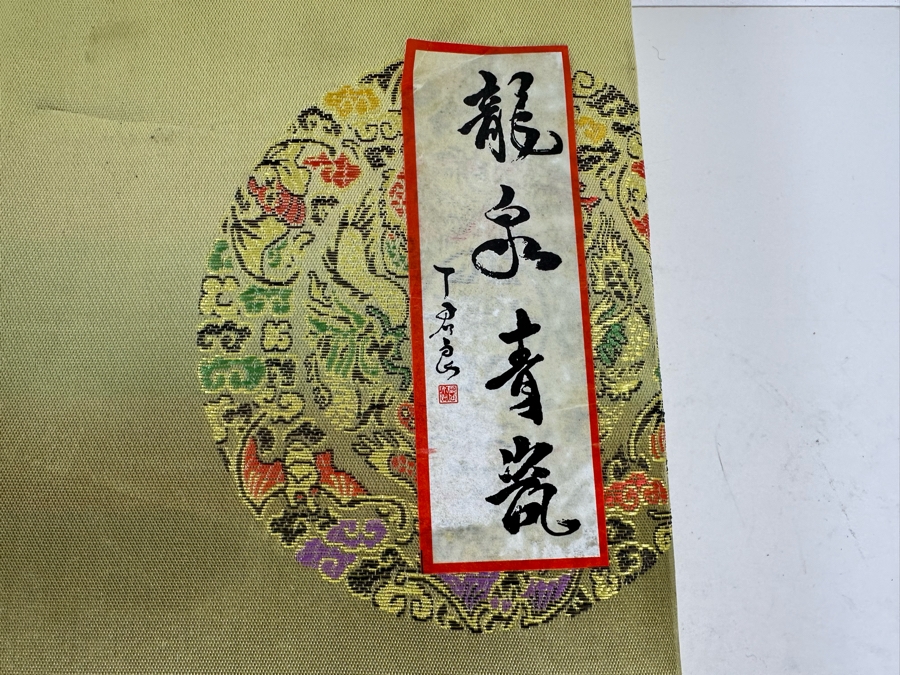 龍泉青瓷
丁君良